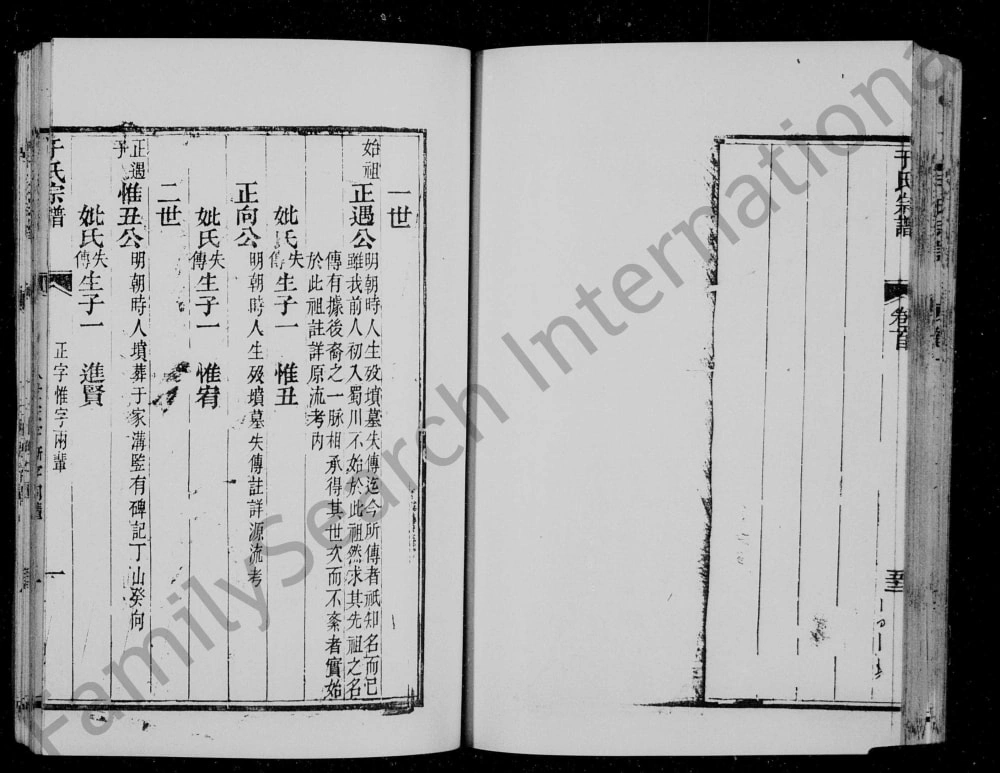 于氏宗譜
卷首
一世
始祖
正遇公
明朝時人生歿墳墓失傳迄今所傳者祇知名而已
雖我前人初入蜀川不始於此祖然求其先祖之名
傳有據後裔之一脈相承得其世次而不紊者實始
於此祖註詳原流考內
妣氏失傳生子一 惟丑
正向公
明朝時人生歿墳墓失傳註詳源流考
妣氏失傳生子一 惟宥
二世
正遇子
惟丑公
明朝時人墳葬于家溝監有碑記丁山癸向
妣氏失傳生子一 進賢
正字惟字兩輩
于氏宗譜
一
FamilySearch International